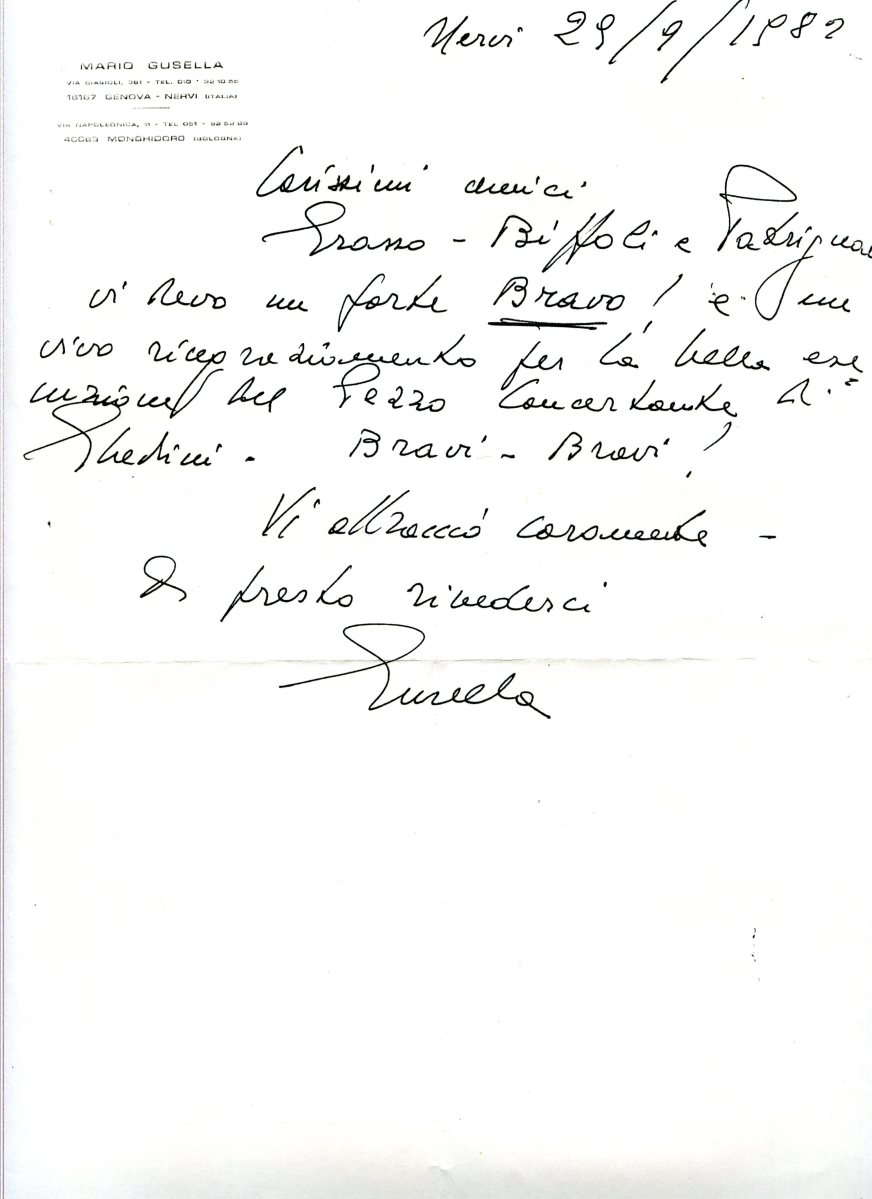 Nervi 29/9/1982
MARIO GUSELLA
VIA OLIVIERI, 381 - TEL. 010 - 32 10 86
16167 GENOVA - NERVI (ITALIA)
VIA NAPOLEONICA, 11 - TEL 051 - 92 52 89
40063 MONGHIDORO (BOLOGNA)
Carissimi amici
Grasso - Biffoli e Padrignan
vi devo un forte Bravo! e un
vivo ringraziamento per la bella ese
cuzione del Pezzo Concertante di
Ghedini - Bravi - Bravi!
Vi abbraccio caramente -
A presto rivederci
Gusella